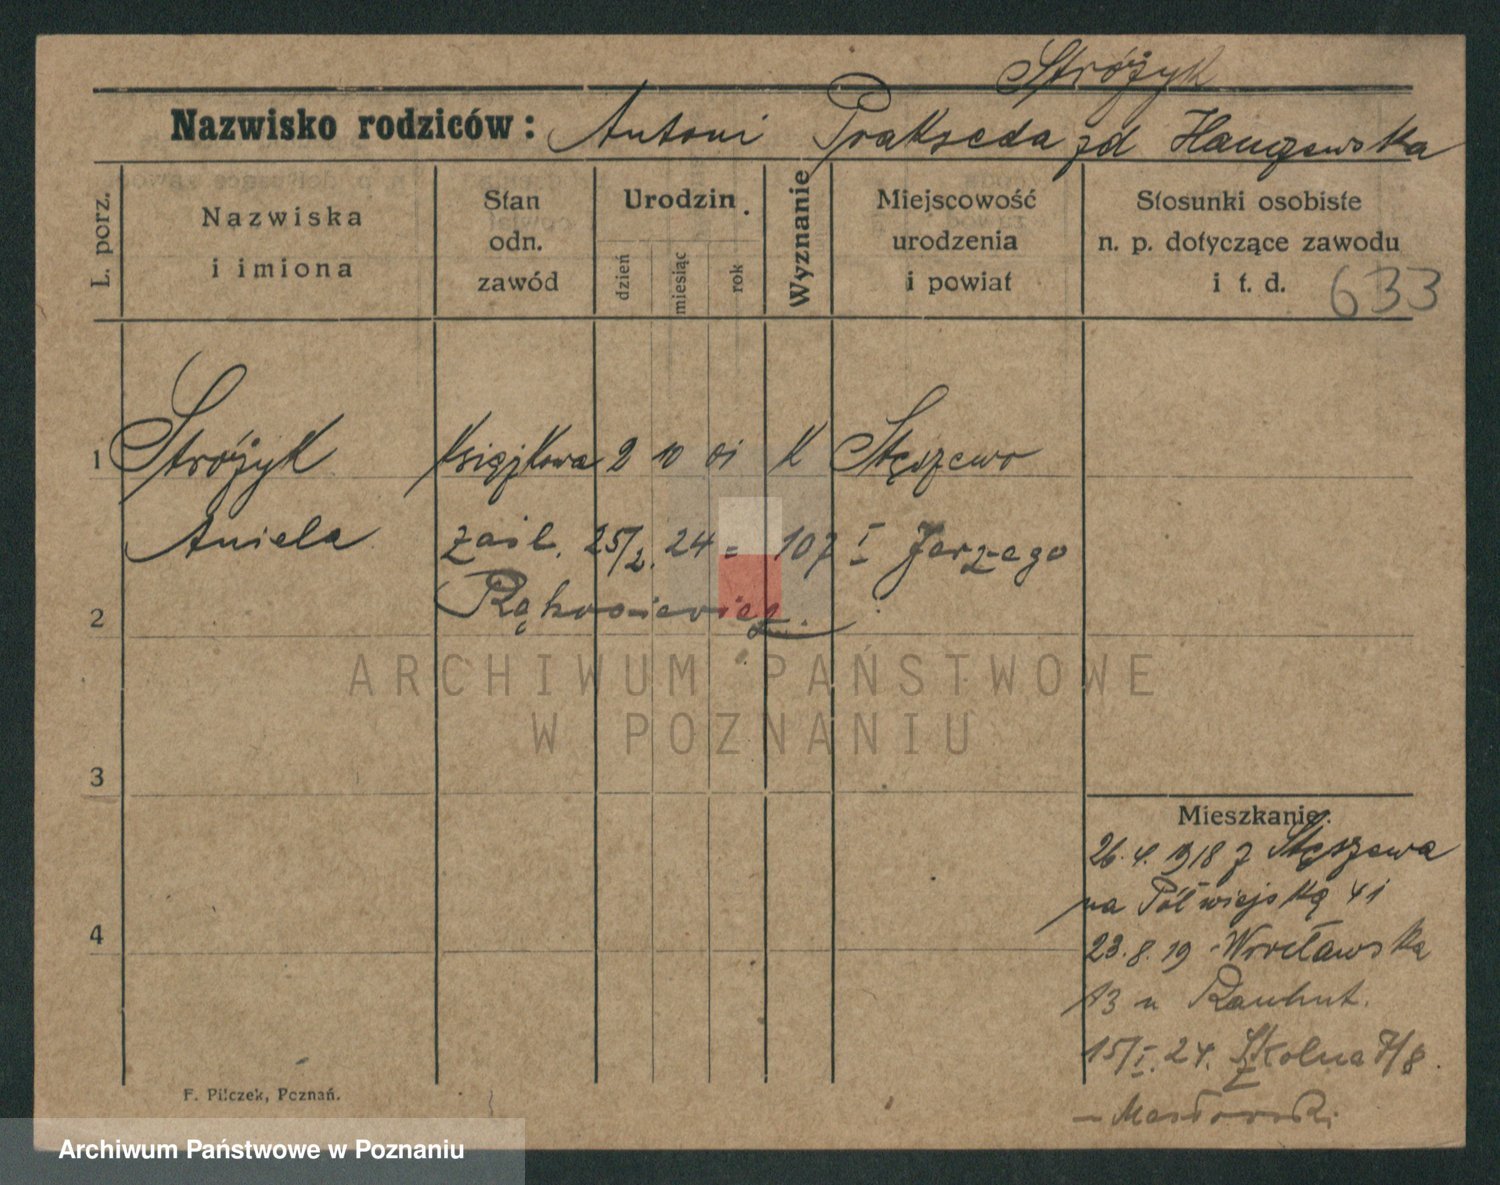 Stróżyk
Nazwisko rodziców: Antoni Prakseda zd
L. porz.
Nazwiska i imiona
Stan odn. zawód
Urodzin
dzień
miesiąc
rok
Wyznanie
Miejscowość urodzenia i powiat
Stosunki osobiste n. p. dotyczące zawodu i t. d.
633
1 Stróżyk książkowa 2 10 01 K Stęszewo
Aniela zaśl. 25/2. 24 = 107 I Jerzego
2
ARCHIWUM PAŃSTWOWE
W POZNANIU
3
Mieszkanie:
26.4.1918 z Stęszewa
na Półwiejską 41
4
23.8.19 Wrocławska
13 u Rauhut.
15/I.24. Szkolna 7/8.
F. Pilczek, Poznań.
Archiwum Państwowe w Poznaniu